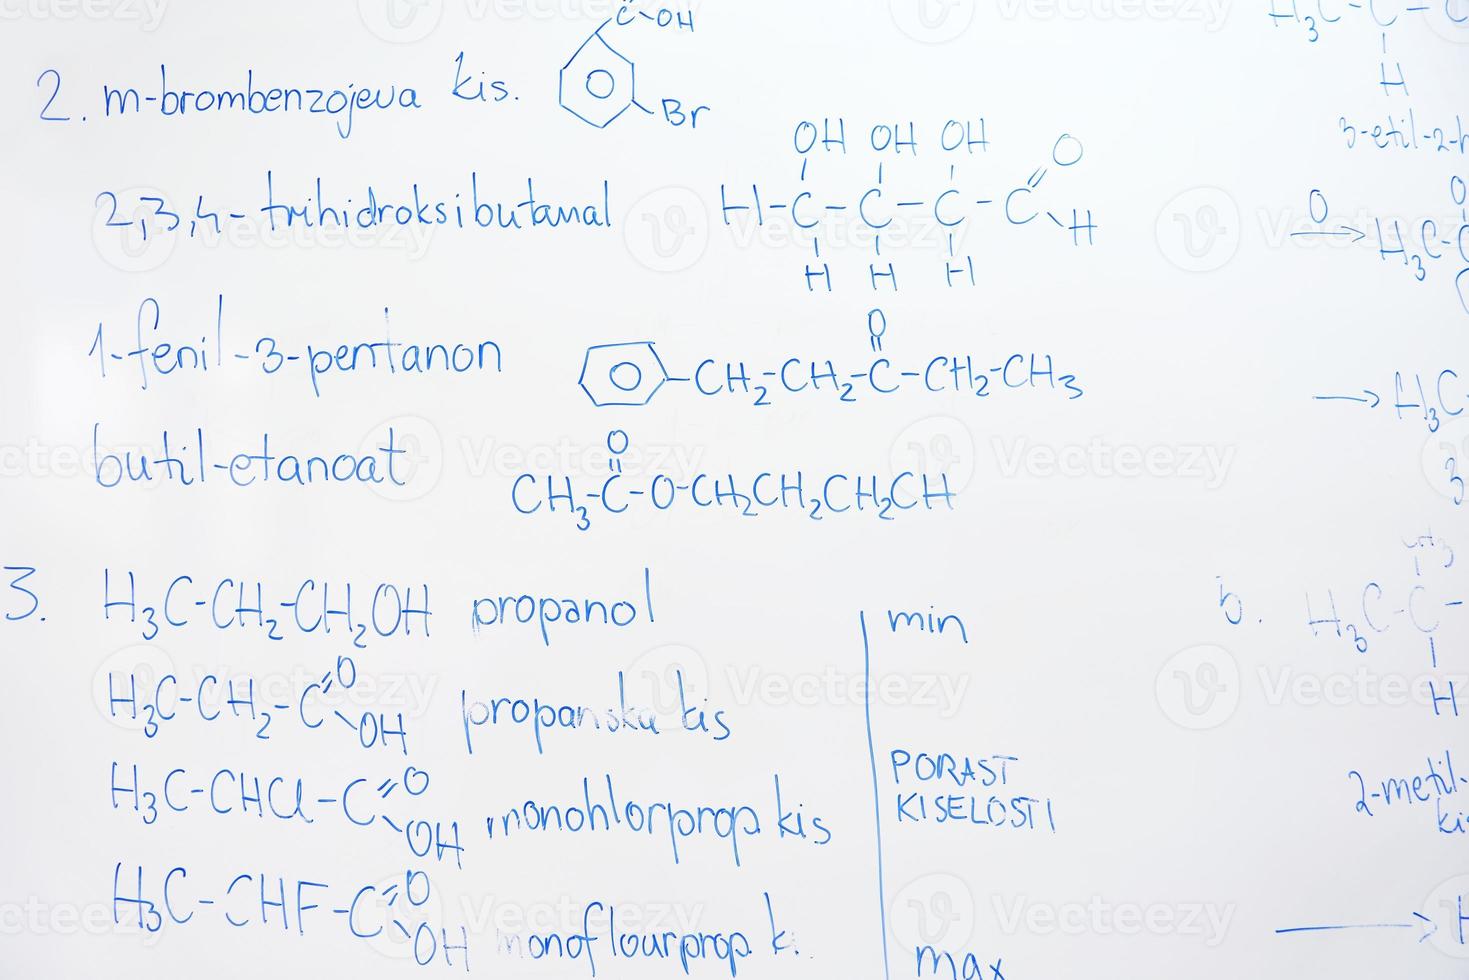 C-OH
2. m-brombenzojeva kis.
Br
2,3,4-trihidroksibutanal
OH OH OH O
H-C-C-C-C
H
H H H
1-fenil-3-pentanon
O
-CH2-CH2-C-CH2-CH3
butil-etanoat
O
CH3-C-O-CH2CH2CH2CH
3.
H3C-CH2-CH2OH propanol
O
H3C-CH2-C
OH
propanska kis
H3C-CHCl-C
O
OH
monohlorprop. kis
H3C-CHF-C
O
OH
monoflourprop. k.
min
PORAST
KISELOSTI
max
H3C-C-
H
3-etil-2-
O
O
H3C-C
H3C
3
CH3
H3C-C-
H
2-metil-
Vecteezy